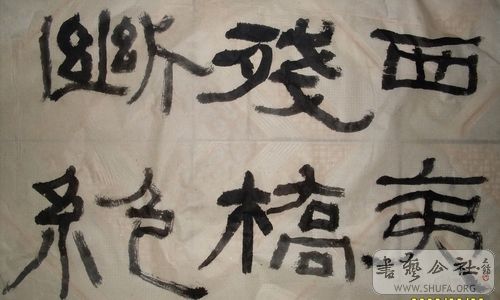 西夷
殘橋
斷絕
書藝公社
WWW.SHUFA.ORG